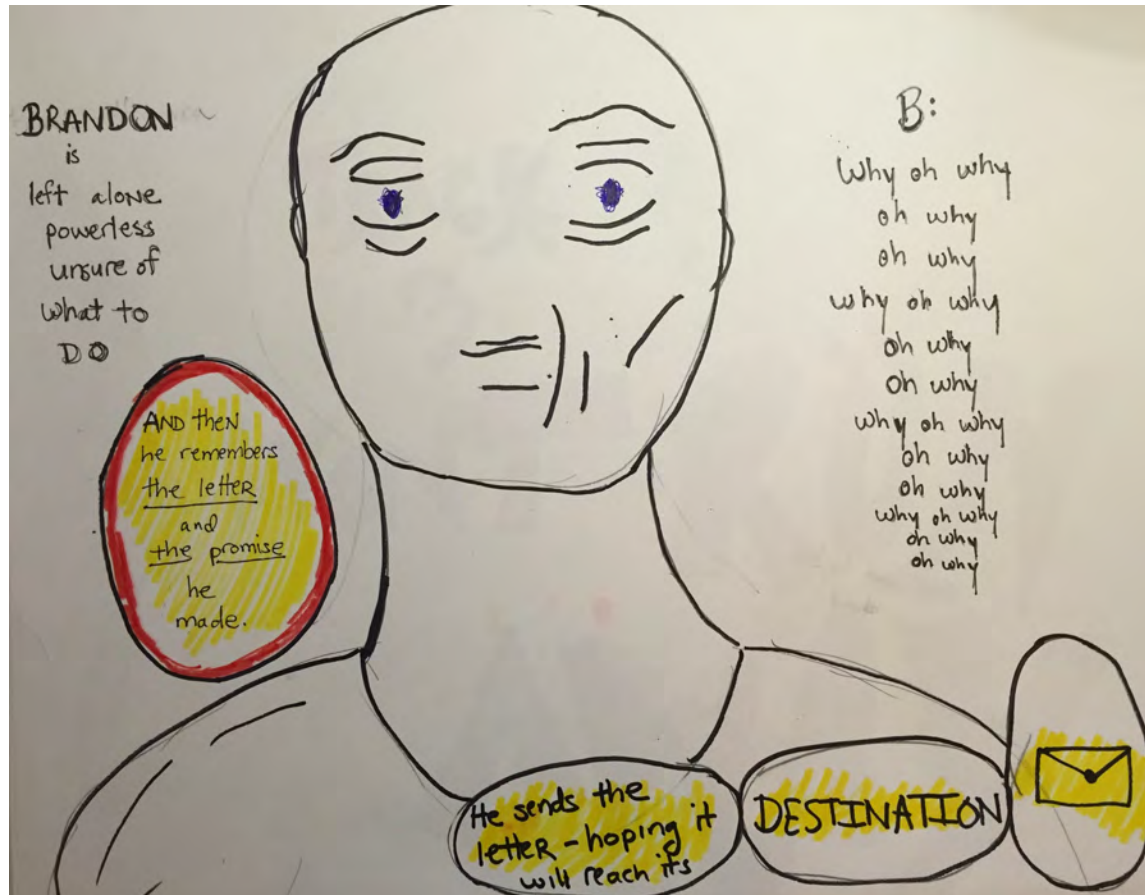 BRANDON
is
left alone
powerless
unsure of
what to
DO
AND theN
he remembers
the letteR
and
the promise
he
made.
B:
Why oh why
oh why
oh why
why oh why
oh why
oh why
why oh why
oh why
oh why
why oh why
oh why
oh why
He sends the
letteR - hoping it
will reach its
DESTINATION